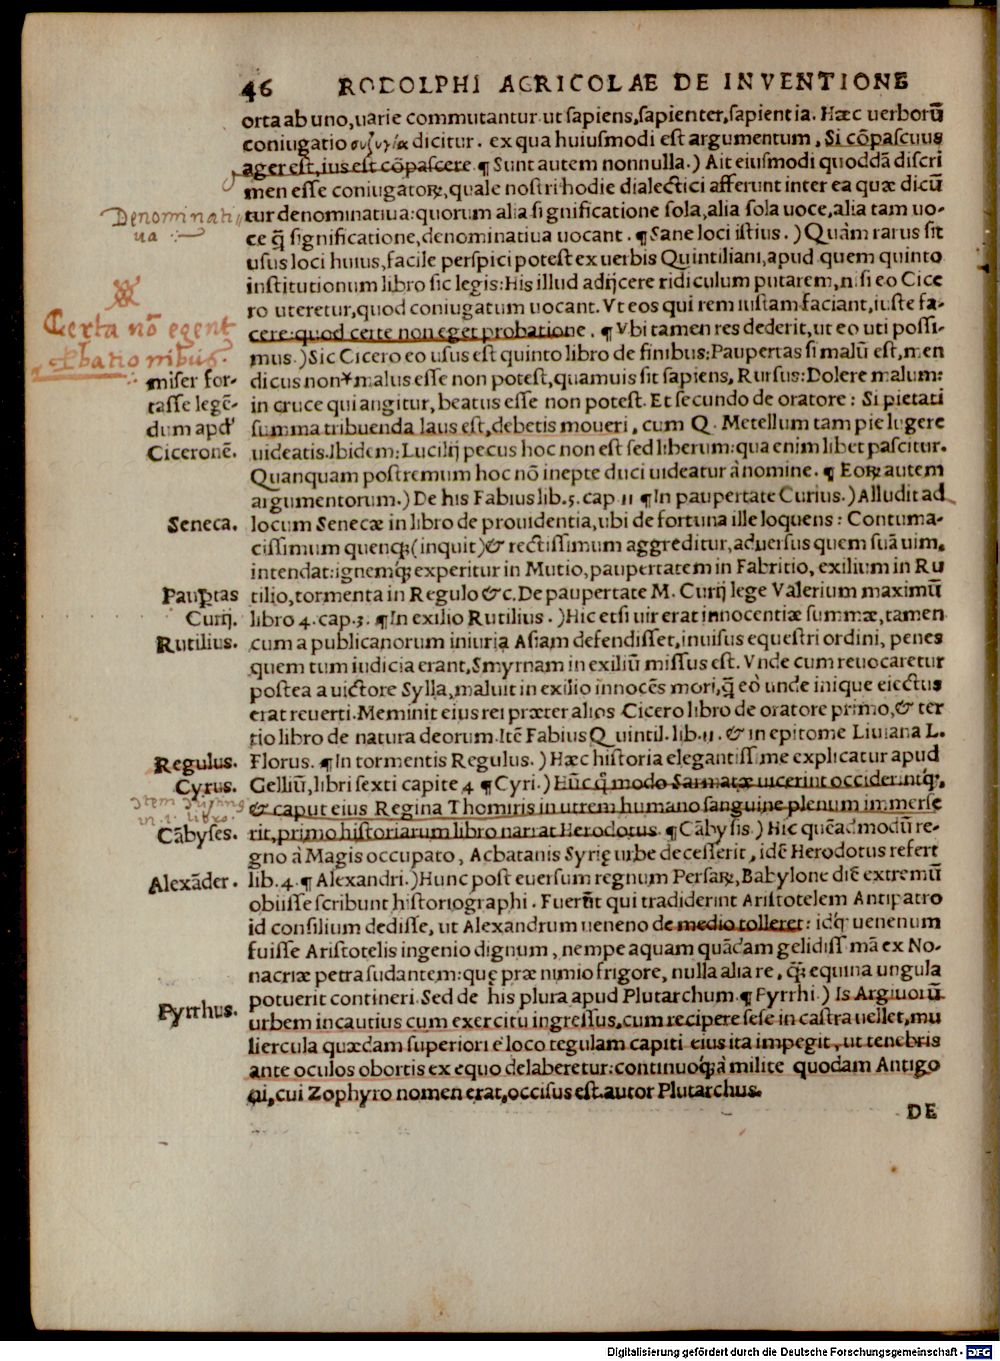 46 RODOLPHI AGRICOLAE DE INVENTIONE
orta ab uno, uarie commutantur ut sapiens, sapienter, sapientia. Hæc uerborū
coniugatio συζυγία dicitur. ex qua huiusmodi est argumentum, Si cōpascuus
ager est, ius est cōpascere ¶ Sunt autem nonnulla.) Ait eiusmodi quoddā discri
men esse coniugatoꝝ, quale nostri hodie dialectici afferunt inter ea quæ dicū
Denominati
tur denominatiua: quorum alia significatione sola, alia sola uoce, alia tam uo-
ua
ce q̃ significatione, denominatiua uocant. ¶ Sane loci istius.) Quàm rarus sit
usus loci huius, facile perspici potest ex uerbis Quintiliani, apud quem quinto
institutionum libro sic legis: His illud adijcere ridiculum putarem, nisi eo Cice
ro uteretur, quod coniugatum uocant. Vt eos qui rem iustam faciant, iuste fa-
Certa nō egent
cere: quod certe non eget probatione. ¶ Vbi tamen res dederit, ut eo uti possi-
ꝓbationibus.
mus.) Sic Cicero eo usus est quinto libro de finibus: Paupertas si malū est, men
miser for-
dicus non malus esse non potest, quamuis sit sapiens, Rursus: Dolere malum:
tasse legē-
in cruce qui angitur, beatus esse non potest. Et secundo de oratore: Si pietati
dum apd'
summa tribuenda laus est, debetis moueri, cum Q. Metellum tam pie lugere
Ciceronē.
uideatis. Ibidem: Lucilij pecus hoc non est sed liberum: qua enim libet pascitur.
Quanquam postremum hoc nō inepte duci uideatur à nomine. ¶ Eoꝝ autem
argumentorum.) De his Fabius lib. 5. cap 11 ¶ In paupertate Curius.) Alludit ad
Seneca.
locum Senecæ in libro de prouidentia, ubi de fortuna ille loquens: Contuma-
cissimum quenq; (inquit) & rectissimum aggreditur, aduersus quem suā uim,
intendat: ignemq; experitur in Mutio, paupertatem in Fabritio, exilium in Ru
Paup̱tas
tilio, tormenta in Regulo &c. De paupertate M. Curij lege Valerium maximū
Curij.
libro 4. cap. 3. ¶ In exilio Rutilius.) Hic etsi uir erat innocentiæ summæ, tamen
Rutilius.
cum a publicanorum iniuria Asiam defendisset, inuisus equestri ordini, penes
quem tum iudicia erant, Smyrnam in exiliū missus est. Vnde cum reuocaretur
postea a uictore Sylla, maluit in exilio innocēs mori, q̃ eò unde inique eiectus
erat reuerti. Meminit eius rei præter alios Cicero libro de oratore primo, & ter
tio libro de natura deorum. Itē Fabius Quintil. lib. 11. & in epitome Liuiana L.
Regulus.
Florus. ¶ In tormentis Regulus.) Hæc historia elegantissime explicatur apud
Cyrus.
Gelliū, libri sexti capite 4 ¶ Cyri.) Hūc q̃ modo Sarmatæ uicerint occiderintq;,
& caput eius Regina Thomiris in utrem humano sanguine plenum immerse
Cābyses.
rit, primo historiarum libro narrat Herodotus. ¶ Cābysis.) Hic quēadmodū re-
gno à Magis occupato, Acbatanis Syrię urbe decesserit, idē Herodotus refert
Alexāder.
lib. 4. ¶ Alexandri.) Hunc post euersum regnum Persaꝝ, Babylone diē extremū
obiisse scribunt historiographi. Fuerūt qui tradiderint Aristotelem Antipatro
id consilium dedisse, ut Alexandrum ueneno de medio tolleret: idq; uenenum
fuisse Aristotelis ingenio dignum, nempe aquam quādam gelidissimā ex No-
nacriæ petra sudantem: quę præ nimio frigore, nulla alia re, q̃; equina ungula
potuerit contineri. Sed de his plura apud Plutarchum. ¶ Pyrrhi.) Is Argiuorū
Pyrrhus.
urbem incautius cum exercitu ingressus, cum recipere sese in castra uellet, mu
liercula quædam superiori e loco tegulam capiti eius ita impegit, ut tenebris
ante oculos obortis ex equo delaberetur: continuoq; à milite quodam Antigo
ni, cui Zophyro nomen erat, occisus est. autor Plutarchus.
DE
Digitalisierung gefördert durch die Deutsche Forschungsgemeinschaft - DFG